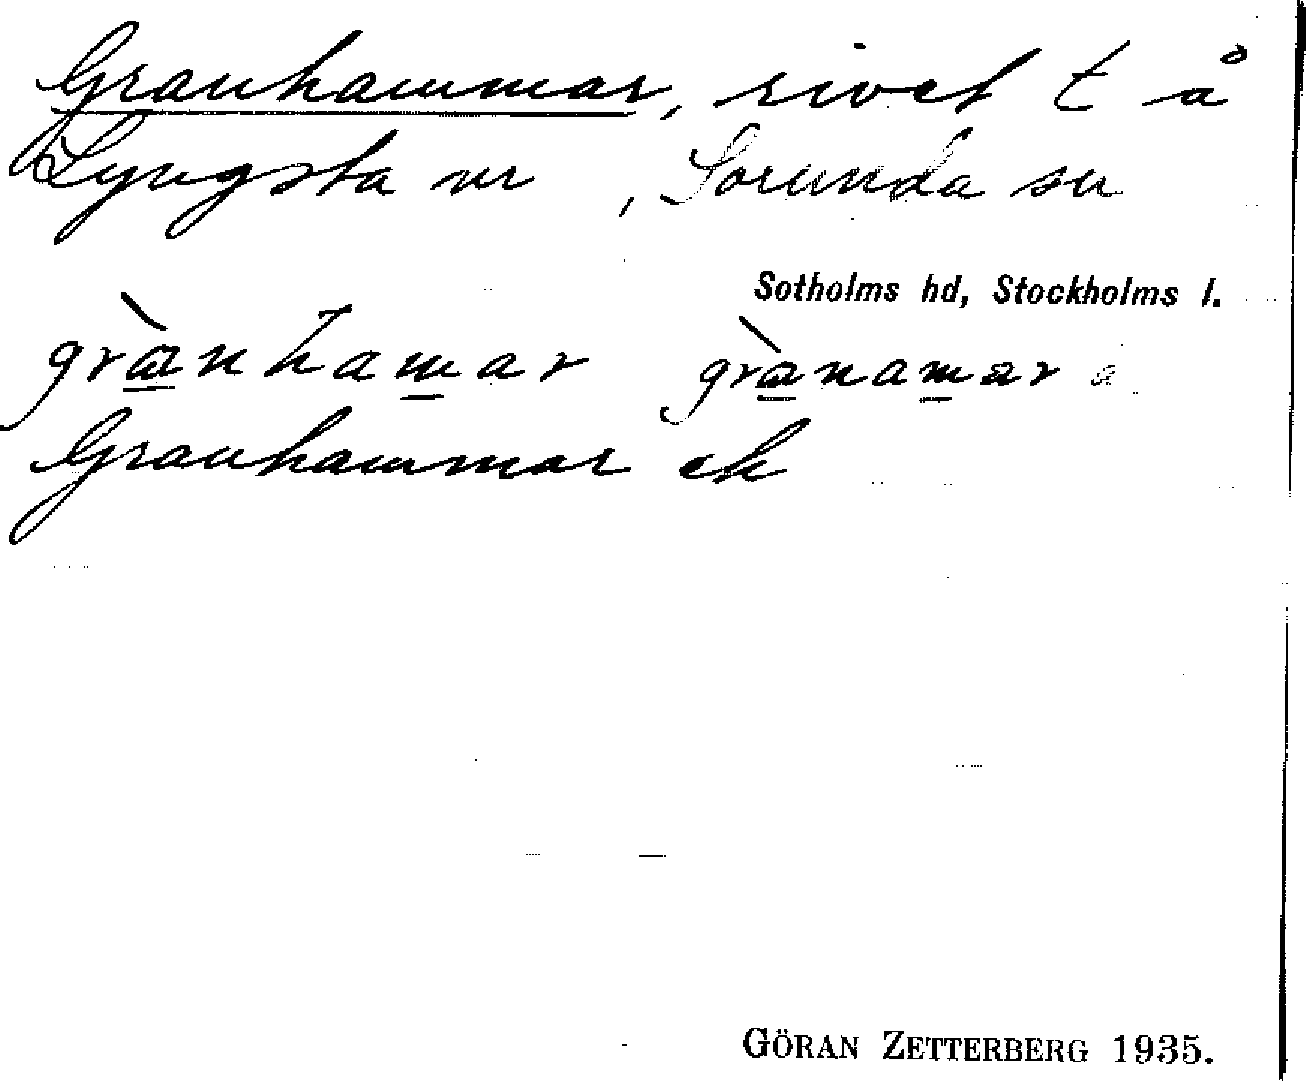 Granhammar, rivet t å
Lyngsta nr , Sorunda sn
Sotholms hd, Stockholms l.
grànhamar grànamar a
Granhammar ek
GÖRAN ZETTERBERG 1935.